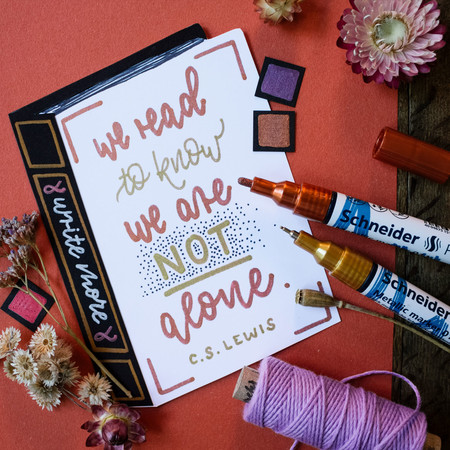 we read
to know
we are
NOT
alone.
C.S. LEWIS
& write more &
Schneider
Schneider
metallic marker